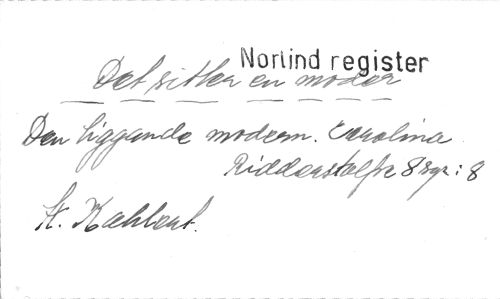 Norlind register
Det sitter en moder
Den tiggande modern. Carolina
Ridderstolpe 8 sgr: 8
H. Kahlent.